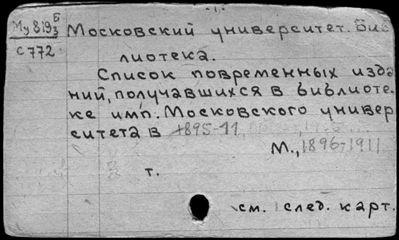 - 1 -
Му 819 Б/3
С 772
Московский университет. Биб
лиотека.
Список повременных изда
ний, получавшихся в библиоте.
ке имп. Московского универ
ситета в 1895-11
М., 1896-1911
т.
см. след. карт.